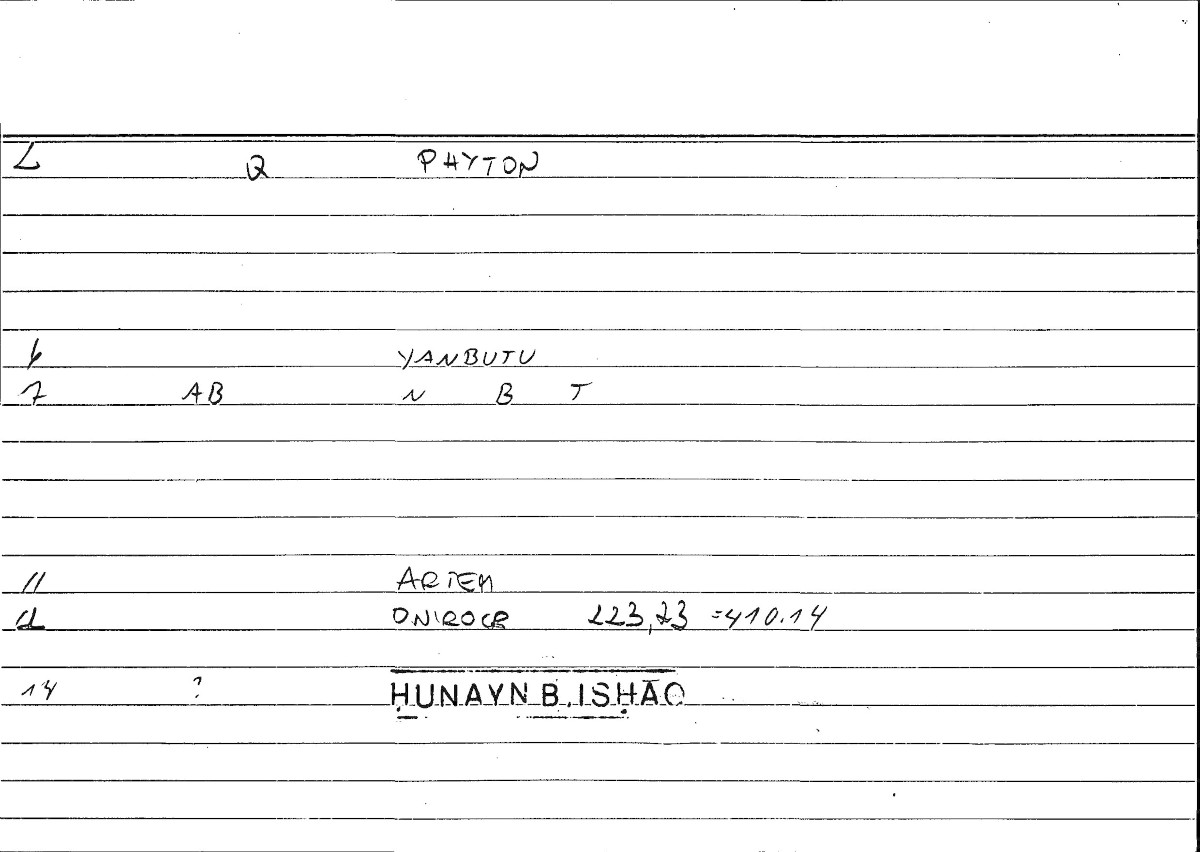 2 Q PHYTON
6 YANBUTU
7 AB N B T
11 ARTEM
12 ONIROCR 223,23 =410.14
14 ? ḤUNAYN B. ISḤĀQ